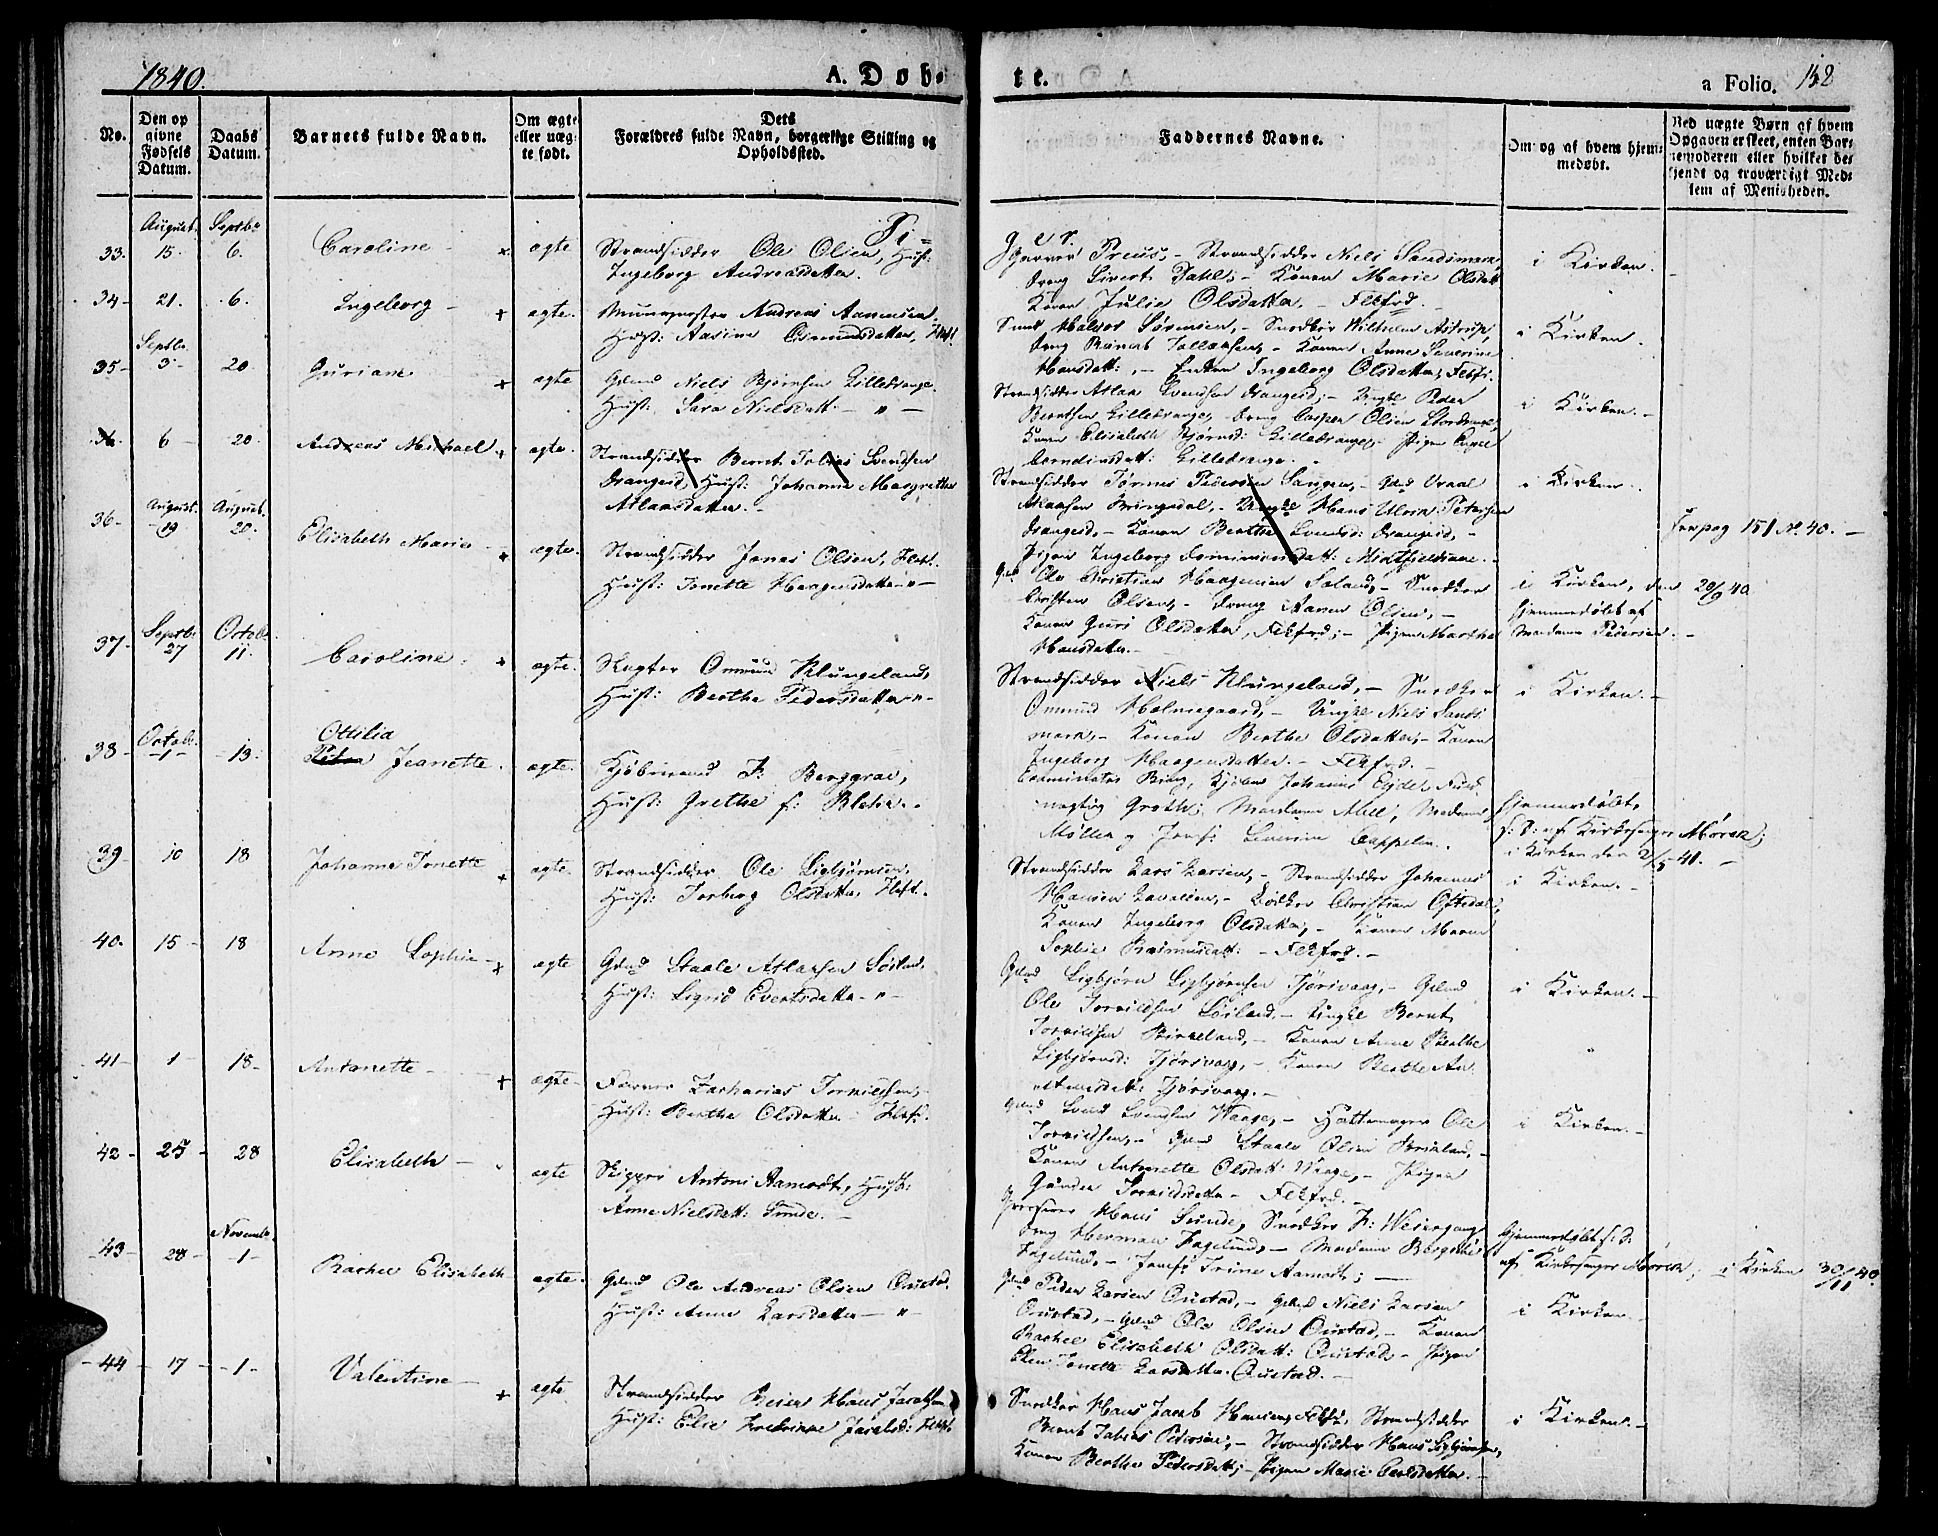 1840.
A. Døb-
te.
a Folio. 152
No.
Den op
givne
Fødsels
Datum.
Daabs
Datum.
Barnets fulde Navn.
Om ægte
eller uæg-
te født.
Dets
Forældres fulde Navn, borgerlige Stilling og
Opholdssted.
Faddernes Navne.
Om og af hvem hjem-
medøbt.
Ved uægte Børn af hvem
Opgaven er skeet, enten Bar-
nemoderen eller hvilket be-
kjendt og troværdigt Med-
lem af Menigheden.
Pi=
ger.
August. Septbr
33. 15. 6. Caroline - ægte Strandsidder Ole Olsen, Hust:
Ingeborg Andreasdatter.
Preus, - Strandsidder Niels Sandsmark,
Dreng Sivert Dahl; - Konen Marie Olsdatt
Konen Julie Olsdatter, - Flkfrd -
i Kirken. -
34- 21. 6. Ingeborg - ægte. Muurmester Andreas Aanensen
Hust: Aasine Osmundsdatter, Flkf.
Smed Halvor Sørensen, - Snedker Wilhelm Astrup,
Dreng Tollaksen, - Konen Anne Severine
Hansdatt:, - Enken Ingeborg Olsdatter, Flkf.
i Kirken.
Septbr.
35- 3- 20. Guriane ægte Gdmd Niels Bjørnsen Lilledrange.
Hust: Sara Nielsdatt. - " -
Strandsidder Atlak Svendsen Drangeid; - Ungkl Peder
Berntsen Lilledrange, Dreng Casper Olsen Stordrange,
Konen Elisabeth Bjørnsd: Lilledrange, - Pigen
Lilledrange.
i Kirken. -
36. 6 - 20. Andreas Michael ægte. Strandsidder Bernt Tobias Svendsen
Drangeid, Hust: Johanne Margrethe
Atlaksdatter. -
Strandsidder Tørres Pedersen - Gmd
Atlaksen Bringedal, - Ungkl Hans Ulrik Petersen
Drangeid, - Konen Berthe Svendsd: Drangeid, -
Pigen Ingeborg
i Kirken.
August. August.
36- 19 20. Elisabeth Marie - ægte. Strandsidder Jonas Olsen, Flkf.
Hust: Tonette Haagensdatter - " -
Gmd Ole Christian Haagensen - Snedker
Christen Olsen, - Dreng Aanen Olsen, -
Konen Guri Olsdatter, Flkfrd; - Pigen Marthe
Hansdatter. -
i Kirken, den 20/9 40.
Hjemmedøbt af
Madame Pedersen. -
pag 151 No 40. -
Septbr. Octobr.
37- 27 11. Caroline. ægte. Skipper Omund Klungeland,
Hust: Berthe Pedersdatter - " -
Strandsidder Niels Klungeland, - Snedker
Omund Holmegaard, - Ungkl Niels Sands
mark, - Konen Berthe Olsdatter, - Konen
Ingeborg Haagensdatter. - Flkfrd. -
i Kirken. -
Octobr.
38- -1- -13. Ottilia
Petra Jeanette. ægte. Kjøbmand F: Berggrav,
Hust: Grethe f:
Kjøbm Johannes Eyde, Fuld
mægtig Groth; Madame Madame
Møller og Jomf: Severine Cappelen.
Hjemmedøbt,
s: D: af Kirkesanger Mørch;
i Kirken den 2/5 41. -
39- 10 18 Johanne Tonette ægte. Strandsidder Ole Sigbjørnsen,
Hust: Torborg Olsdatter, Flkf. -
Strandsidder Lars Larsen, - Strandsidder Johannes
Hansen - Bødker Christian Oftedal,
Konen Ingeborg Olsdatter, - Konen Maren
Sophie Rasmusdatt: - Flkfrd. -
i Kirken. -
40. 15 - 18 Anne Sophie - ægte Gdmd Staale Atlaksen Søiland.
Hust: Sigrid Evertsdatter - " -
Gdmd Sigbjørn Sigbjørnsen Tjørsvaag, - Gdmd
Ole Torkildsen Søiland, - Ungkl Bernt
Torkildsen Birkeland, - Konen Anne
Sigbjørnsd: Tjørsvaag, - Konen Berthe
Tjørsvaag. -
i Kirken. -
41- 1 18- Antonette - ægte - Farver Zacharias Torkildsen, -
Hust: Berthe Olsdatter - Flkf.
Gdmd Svend Svendsen Waage, - Hattemager Ole
Torkildsen, - Gmd Staale Olsen
Konen Antonette Olsdatt: Waage, - Pigen
Gunder Torkildsdatter - Flkfrd. -
i Kirken. -
42- 25- 28 Elisabeth - ægte Skipper Antoni Aamodt, Hust:
Anne Nielsdatt: Sunde. -
Hans Sunde, Snedker F:
Dreng Herman Fagelund, - Madame
Fagelund, - Jomf: Trine Aamodt; -
Hjemmedøbt s: D:
af Kirkesanger Mørch; i Kirken 30/11 40.
Novembr.
43- 28- -1- Rachel Elisabeth ægte. Gdmd Ole Andreas Olsen Oustad.
Hust: Anne Larsdatter - " -
Gdmd Peder Larsen Oustad, - Gdmd Niels Larsen
Oustad, - Gdmd Ole Olsen Oustad, - Konen
Rachel Elisabeth Olsdatt: Oustad; - Pigen
Elen Tonette Larsdatter Oustad. -
i Kirken. -
-44- 17- -1- Valentine - ægte Strandsidder Hans Jacobsen
Hust: Else Fredrikke Jacobsd: Flkf.
Snedker Hans Jacob Hansen, Flkf. Strandsidder
Bernt Tobias Petersen, - Strandsidder Hans Sigbjørnsen,
Konen Berthe Pedersdatt; - Pigen Marie Carlsdatter. -
i Kirken. -